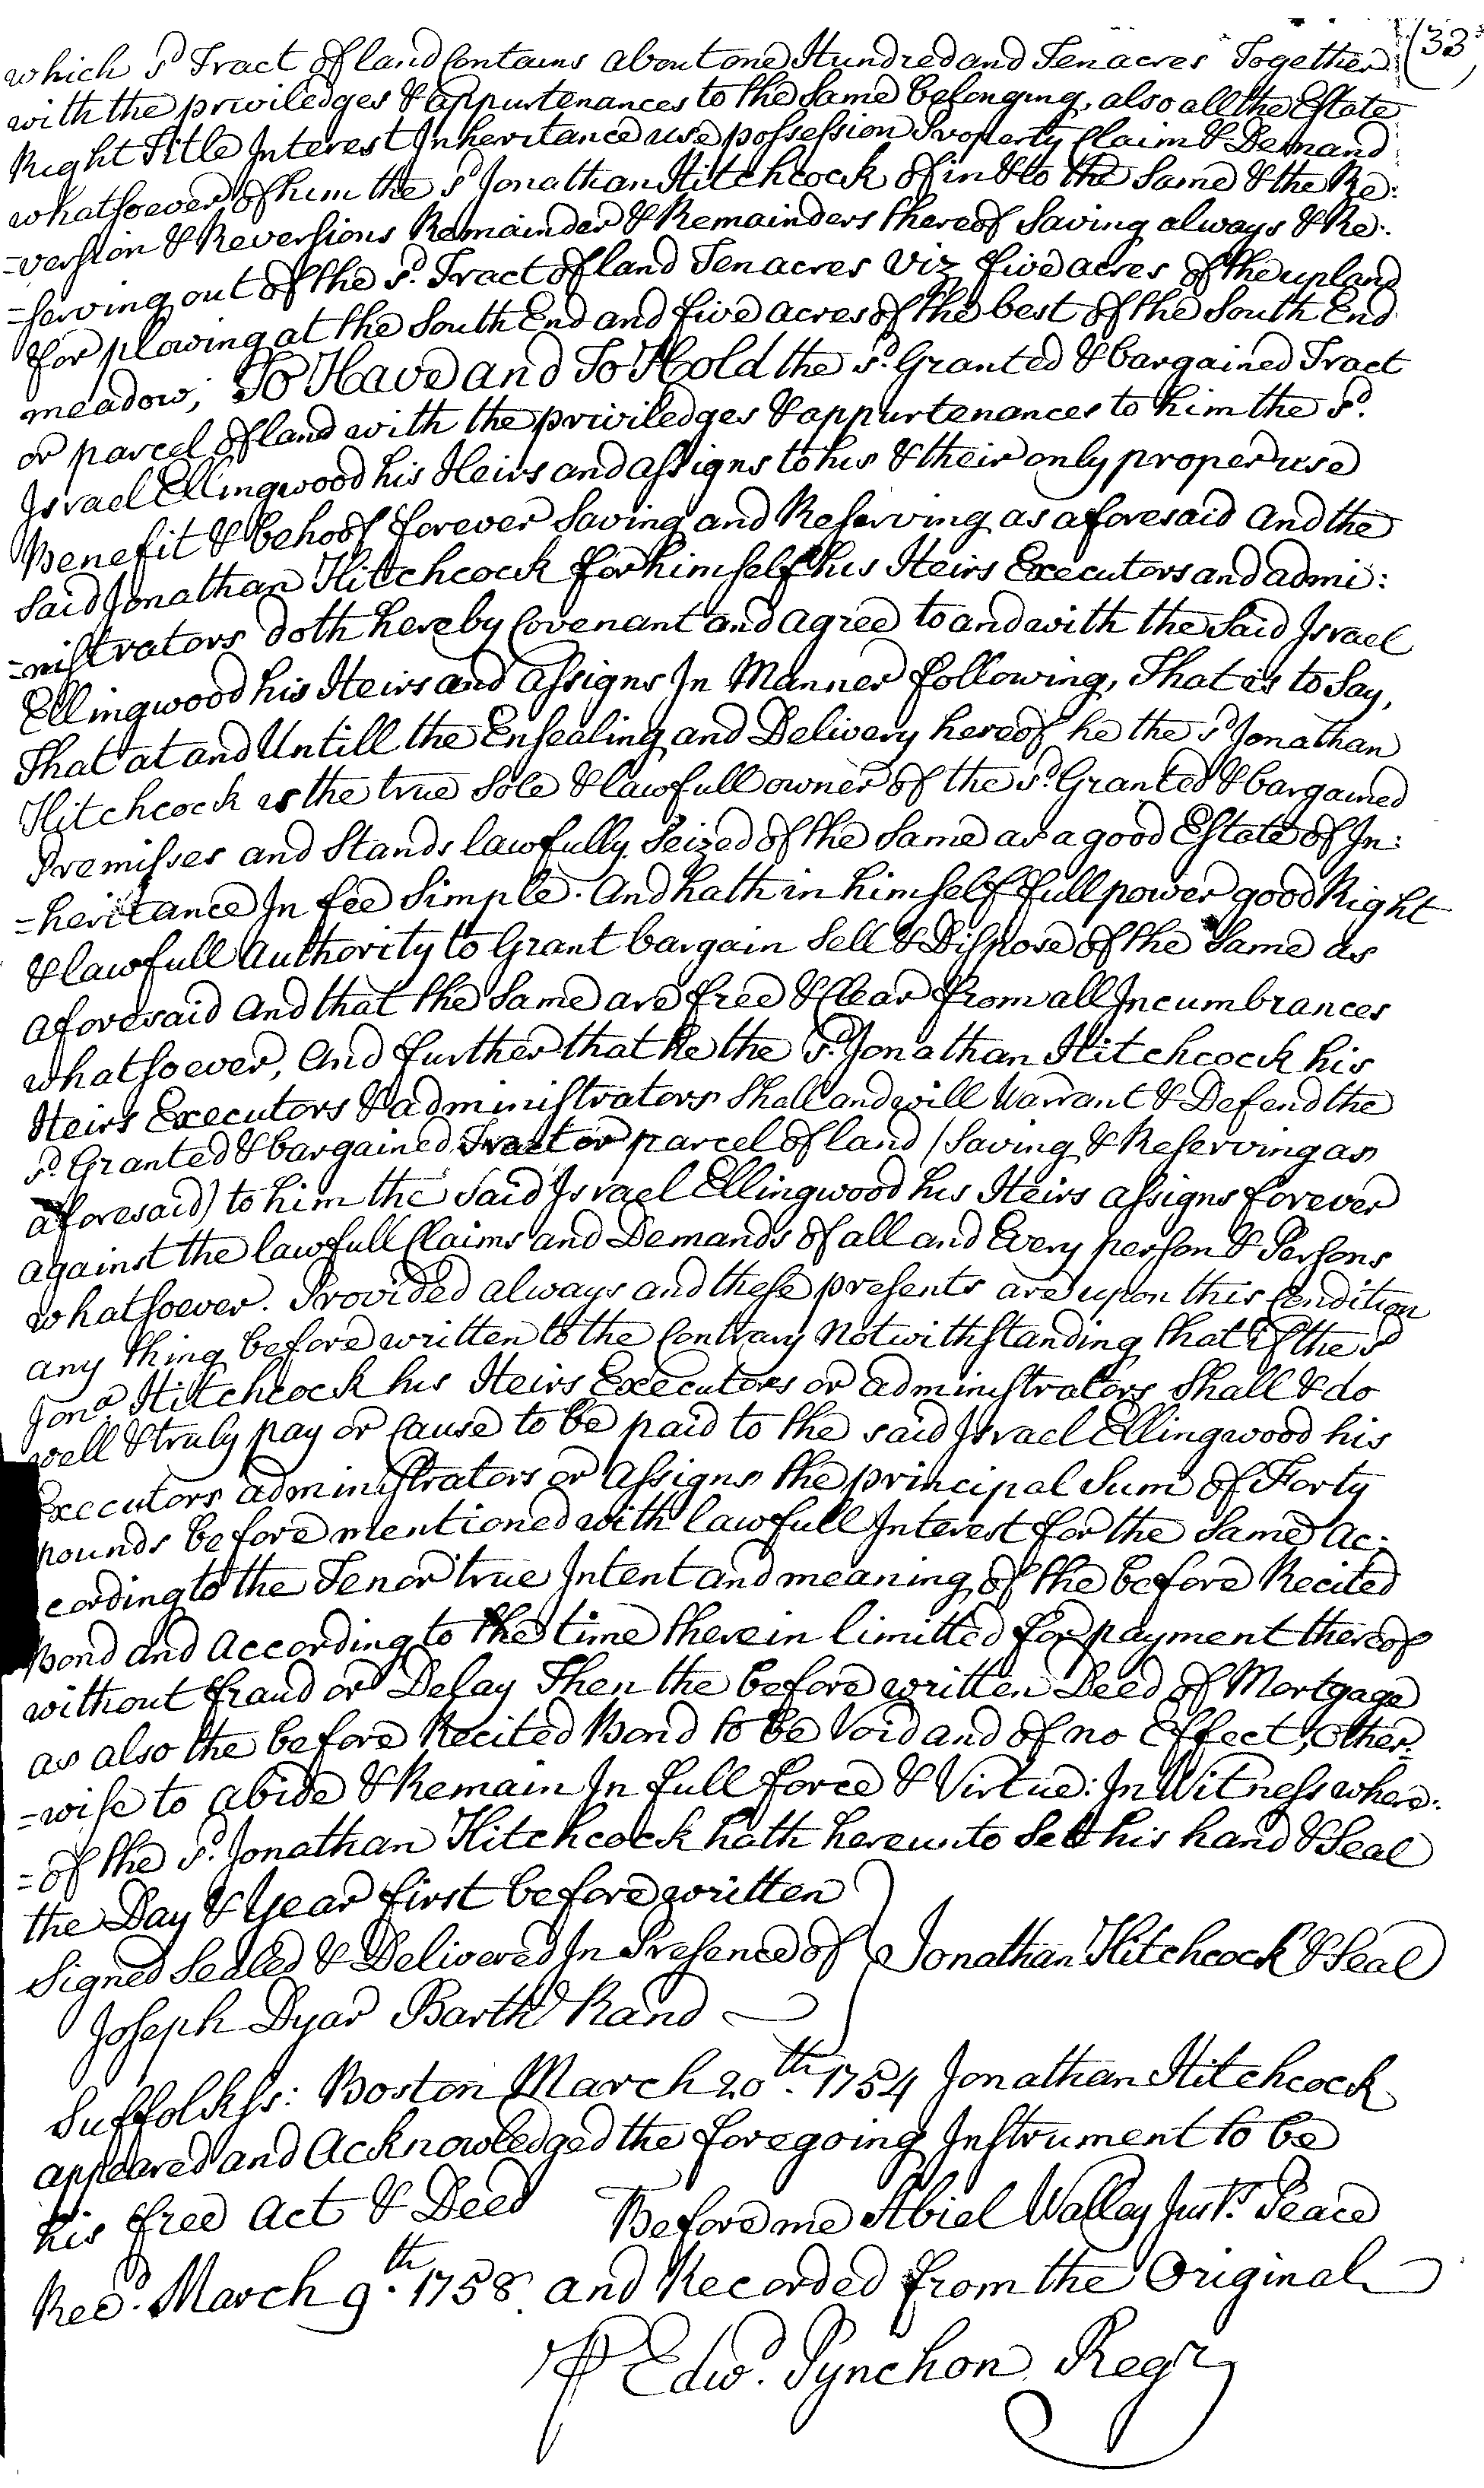 (33
which sd Tract of land Contains about one Hundred and Ten acres Together
with the priviledges & appurtenances to the same belonging, also all the Estate
Right Title Interest Inheritance use possession Property Claim & Demand
whatsoever of him the sd Jonathan Hitchcock of in & to the same & the Re:
=version & Reversions Remainder & Remainders thereof Saving always & Re:
=serving out of the sd. Tract of land Ten acres Viz five acres of the upland
for plowing at the South End and five acres of the best of the South End
meadow; To Have and To Hold the sd. Granted & bargained Tract
or parcel of land with the priviledges & appurtenances to him the sd.
Israel Ellingwood his Heirs and assigns to his & their only proper use
Benefit & behoof forever Saving and Reserving as aforesaid And the
Said Jonathan Hitchcock for himself his Heirs Executors and admi:
=nistrators doth hereby Covenant and agree to and with the Said Israel
Ellingwood his Heirs and assigns In Manner following, That is to Say,
That at and Untill the Ensealing and Delivery hereof he the sd Jonathan
Hitchcock is the true Sole & lawfull owner of the sd. Granted & bargained
Premisses and Stands lawfully Seized of the same as a good Estate of In:
=heritance In fee Simple. And hath in himself full power good Right
& lawfull Authority to Grant bargain Sell & Dispose of the Same as
aforesaid And that the Same are free & Clear from all Incumbrances
whatsoever, And further that he the sd. Jonathan Hitchcock his
Heirs Executors & administrators Shall and will Warrant & Defend the
sd. Granted & bargained Tract or parcel of land (Saving & Reserving as
aforesaid) to him the Said Israel Ellingwood his Heirs assigns forever
against the lawfull Claims and Demands of all and Every person & Persons
whatsoever. Provided always and these presents are upon this Condition
any thing before written to the Contrary Notwithstanding that if the sd
Jona Hitchcock his Heirs Executors or administrators Shall & do
well & truly pay or Cause to be paid to the said Israel Ellingwood his
Executors administrators or assigns the principal Sum of Forty
pounds before mentioned with lawfull Interest for the Same Ac:
cording to the Tenor true Intent and meaning of the before Recited
Bond and According to the time therein limitted for payment thereof
without fraud or Delay Then the before written Deed of Mortgage
as also the before Recited Bond to be Void and of no Effect, Other:
=wise to abide & Remain In full force & Virtue: In Witness where:
=of the sd. Jonathan Hitchcock hath hereunto Set his hand & Seal
the Day & Year first before written
Signed Sealed & Delivered In Presence of } Jonathan Hitchcock & Seal
Joseph Dyar Barth Rand
Suffolk ss: Boston March 20th. 1754 Jonathan Hitchcock
appeared and Acknowledged the foregoing Instrument to be
his free Act & Deed Before me Abiel Walley Just. Peace
Recd. March 9th. 1758. and Recorded from the Original
P Edwd. Pynchon Regr